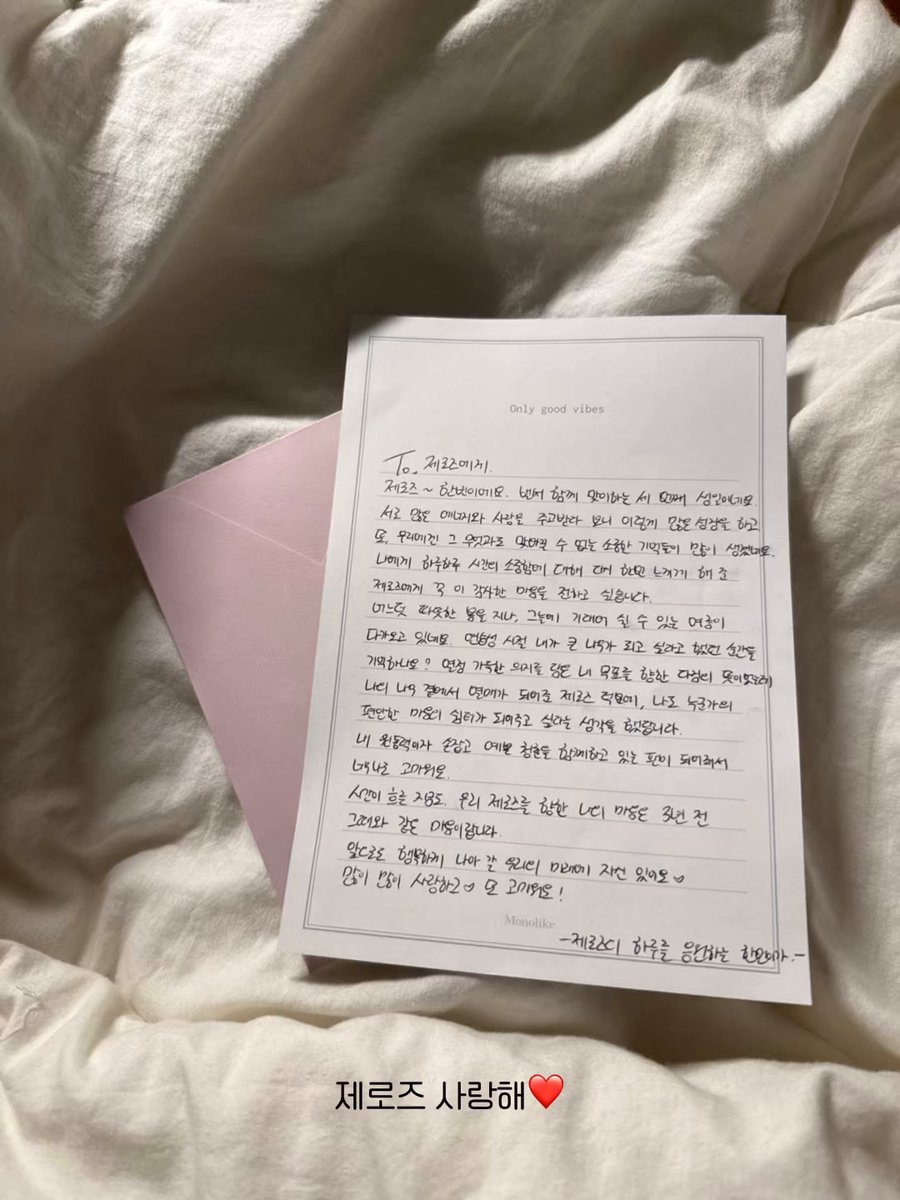 Only good vibes
To. 제로즈에게.
제로즈~ 한빈이에요. 벌써 함께 맞이하는 세 번째 생일이네요.
서로 많은 에너지와 사랑을 주고받다 보니 이렇게 많은 성장을 하고
또, 우리에겐 그 무엇과도 맞바꿀 수 없는 소중한 기억들이 많이 생겼네요.
나에게 하루하루 시간의 소중함에 대해 다시 한번 느끼게 해 준
제로즈에게 꼭 이 감사한 마음을 전하고 싶습니다.
어느덧 따뜻한 봄을 지나, 그늘에 기대어 쉴 수 있는 여름이
다가오고 있네요. 연습생 시절 내가 큰 나무가 되고 싶다고 했던 순간을
기억하나요? 열정 가득한 의지를 담은 내 목표를 향한 다짐의
나의 나무 곁에서 열매가 되어준 제로즈 덕분에, 나도 누군가의
편안한 마음의 쉼터가 되어주고 싶다는 생각을 했답니다.
내 원동력이자 손잡고 예쁜 청춘을 함께하고 있는 팬이 되어줘서
너무나도 고마워요.
시간이 흐른 지금도. 우리 제로즈를 향한 나의 마음은 3년 전
그때와 같은 마음이랍니다.
앞으로도 행복하게 나아갈 우리의 미래에 자신 있어요♡
많이 많이 사랑하고♡ 또 고마워요!
Monolike
-제로즈의 하루를 응원하는 한빈이가.-
제로즈 사랑해❤️